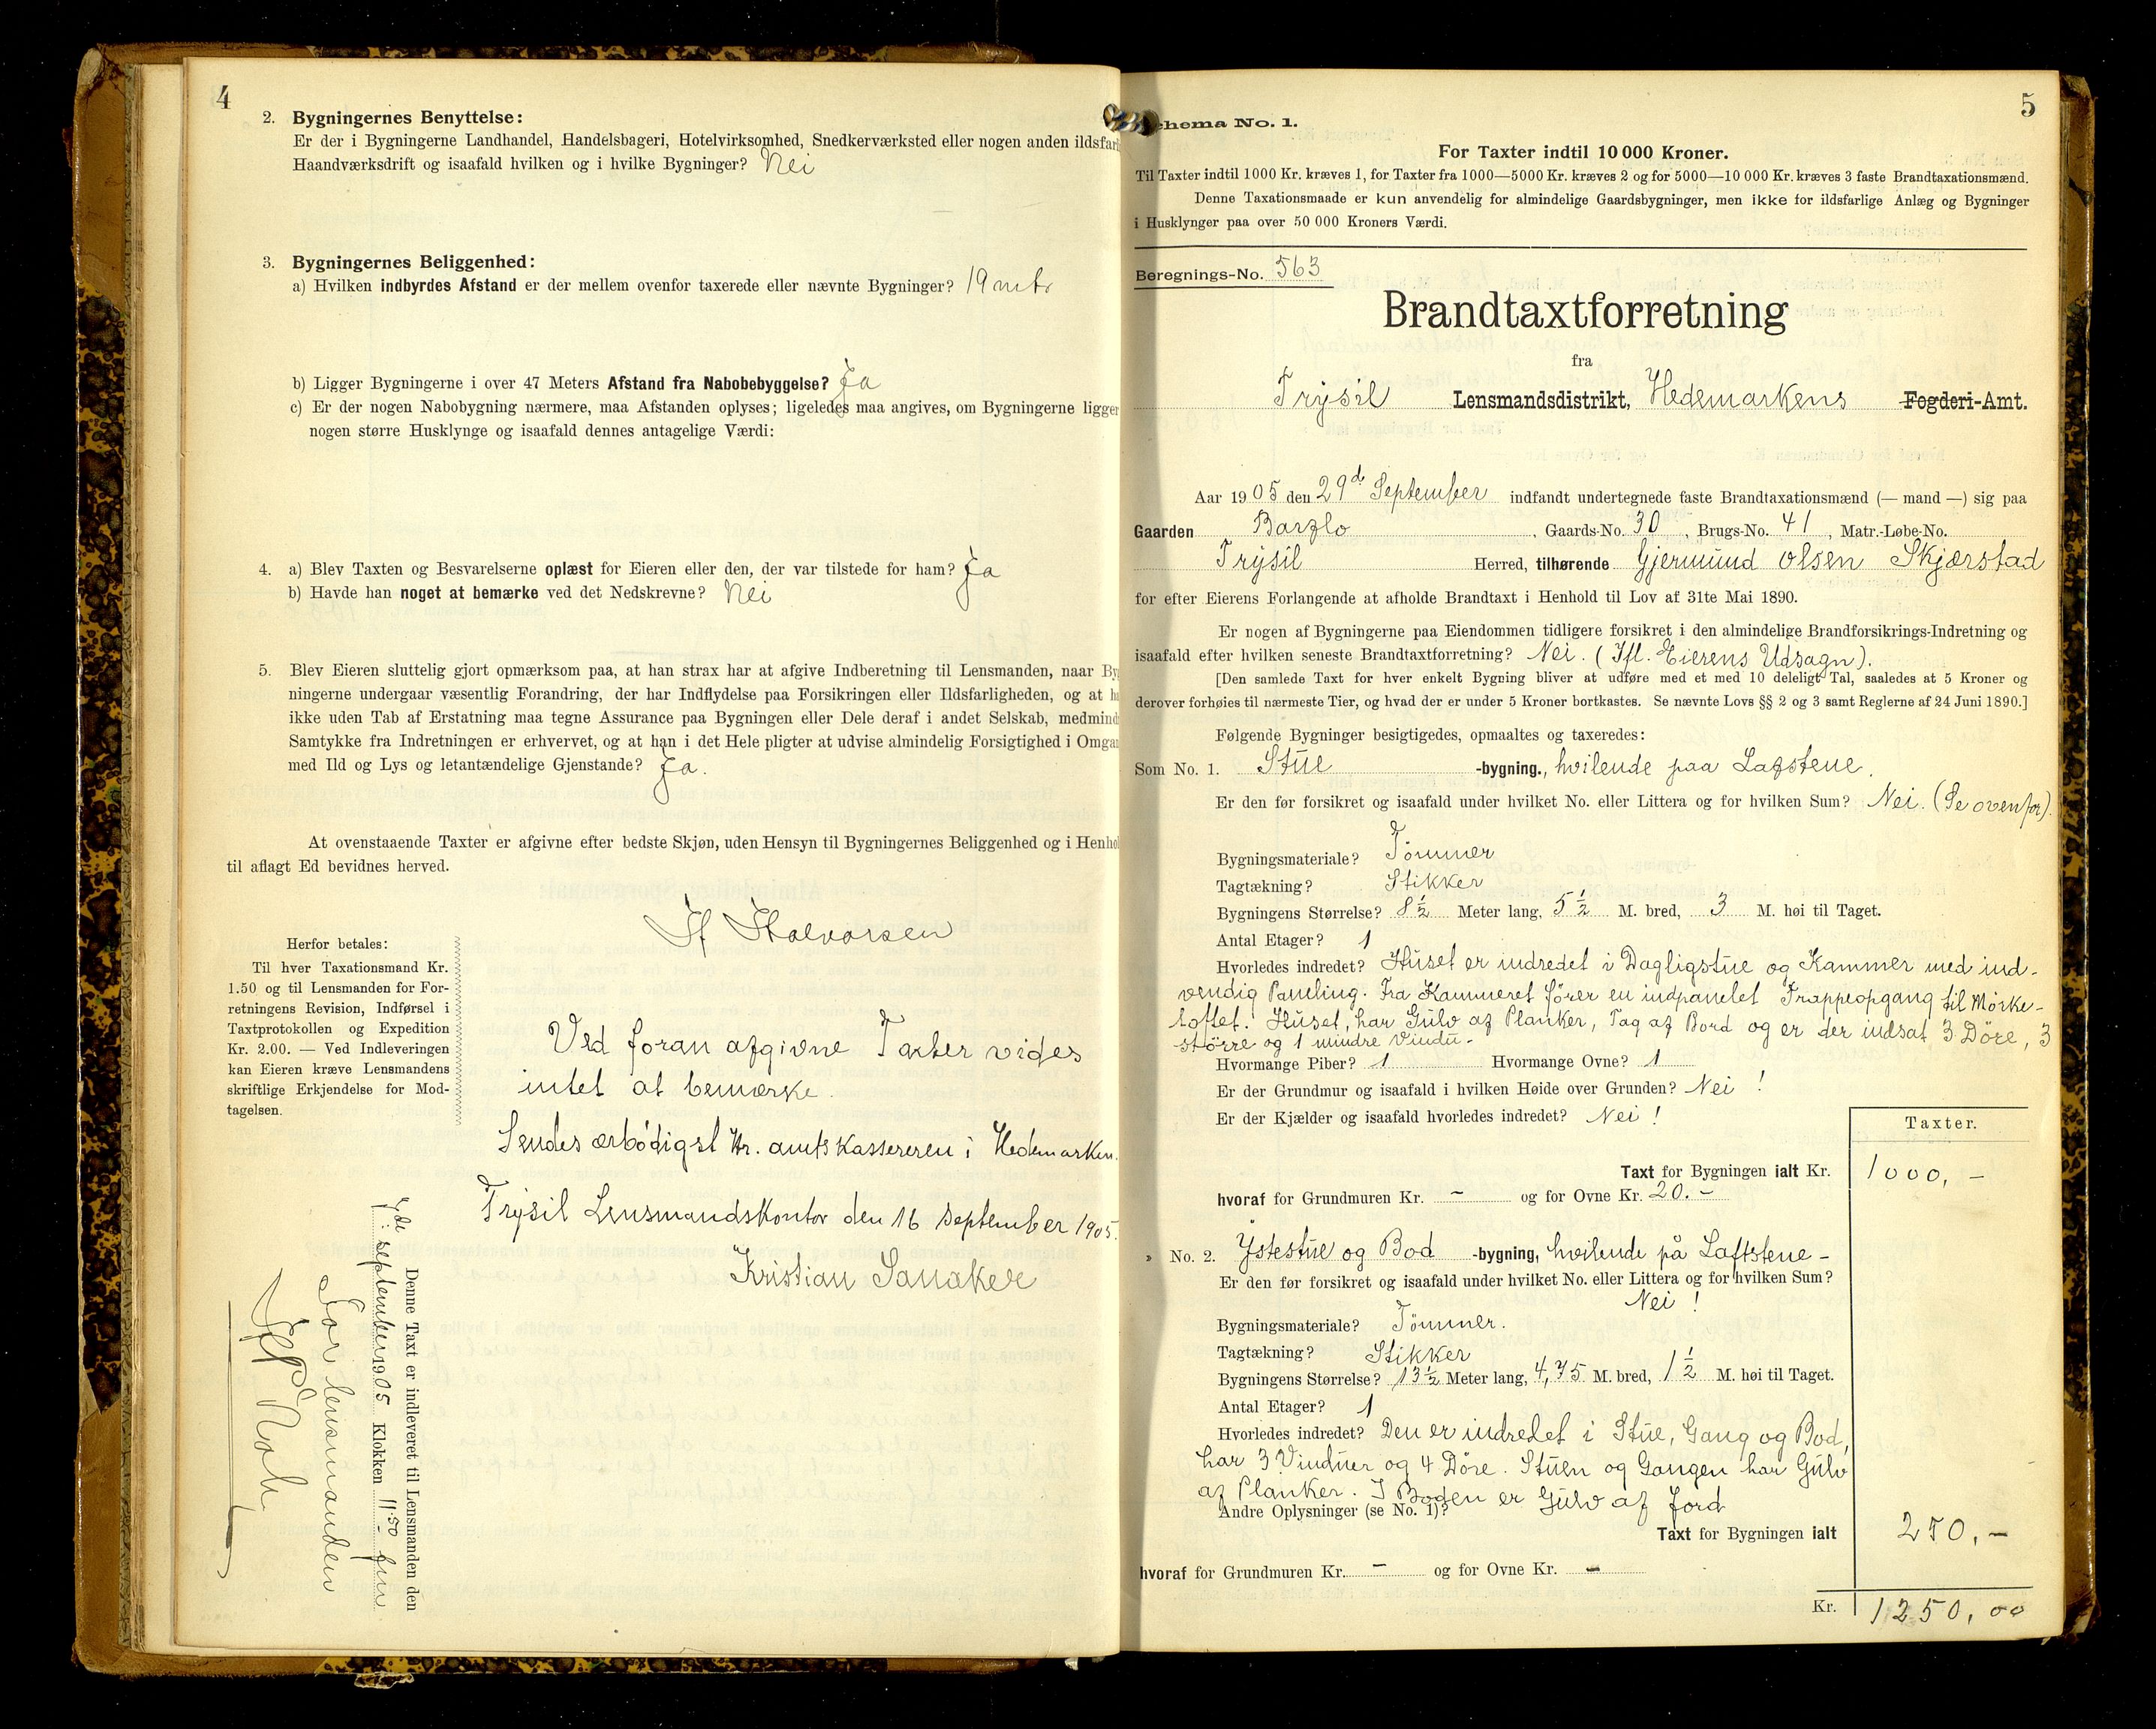 4
2. Bygningernes Benyttelse:
Er der i Bygningerne Landhandel, Handelsbageri, Hotelvirksomhed, Snedkerværksted eller nogen anden ildsfarl
Haandværksdrift og isaafald hvilken og i hvilke Bygninger? Nei
3. Bygningernes Beliggenhed:
a) Hvilken indbyrdes Afstand er der mellem ovenfor taxerede eller nævnte Bygninger? 19 mtr
b) Ligger Bygningerne i over 47 Meters Afstand fra Nabobebyggelse? Ja
c) Er der nogen Nabobygning nærmere, maa Afstanden oplyses; ligeledes maa angives, om Bygningerne ligger
nogen større Husklynge og isaafald dennes antagelige Værdi:
4. a) Blev Taxten og Besvarelserne oplæst for Eieren eller den, der var tilstede for ham? Ja
b) Havde han noget at bemærke ved det Nedskrevne? Nei
5. Blev Eieren sluttelig gjort opmærksom paa, at han strax har at afgive Indberetning til Lensmanden, naar By
ningerne undergaar væsentlig Forandring, der har Indflydelse paa Forsikringen eller Ildsfarligheden, og at h
ikke uden Tab af Erstatning maa tegne Assurance paa Bygningen eller Dele deraf i andet Selskab, medmind
Samtykke fra Indretningen er erhvervet, og at han i det Hele pligter at udvise almindelig Forsigtighed i Omga
med Ild og Lys og letantændelige Gjenstande? Ja.
At ovenstaaende Taxter er afgivne efter bedste Skjøn, uden Hensyn til Bygningernes Beliggenhed og i Henhol
til aflagt Ed bevidnes herved.
H Halvorsen
Herfor betales:
Til hver Taxationsmand Kr.
1.50 og til Lensmanden for For-
retningens Revision, Indførsel i
Taxtprotokollen og Expedition
Kr. 2.00. — Ved Indleveringen
kan Eieren kræve Lensmandens
skriftlige Erkjendelse for Mod-
tagelsen.
Ved foran afgivne Taxter vides
intet at bemærke.
Sendes ærbødigst Hr. amtskassereren i Hedemarken.
Trysil Lensmandskontor den 16 september 1905.
Kristian Sanaker
Denne Taxt er indleveret til Lensmanden den
september 1905 Klokken 11.50 fm
For lensmanden
5
Schema No. 1.
For Taxter indtil 10 000 Kroner.
Til Taxter indtil 1000 Kr. kræves 1, for Taxter fra 1000—5000 Kr. kræves 2 og for 5000—10 000 Kr. kræves 3 faste Brandtaxationsmænd.
Denne Taxationsmaade er kun anvendelig for almindelige Gaardsbygninger, men ikke for ildsfarlige Anlæg og Bygninger
i Husklynger paa over 50 000 Kroners Værdi.
Beregnings-No. 563
Brandtaxtforretning
fra
Trysil Lensmandsdistrikt, Hedemarkens Fogderi-Amt.
Aar 1905 den 29de September indfandt undertegnede faste Brandtaxationsmænd (— mand —) sig paa
Gaarden Barflo, Gaards-No. 30, Brugs-No. 41, Matr.-Løbe-No.
Trysil Herred, tilhørende Gjermund Olsen Skjærstad
for efter Eierens Forlangende at afholde Brandtaxt i Henhold til Lov af 31te Mai 1890.
Er nogen af Bygningerne paa Eiendommen tidligere forsikret i den almindelige Brandforsikrings-Indretning og
isaafald efter hvilken seneste Brandtaxtforretning? Nei. (Ifl. Eierens Udsagn).
[Den samlede Taxt for hver enkelt Bygning bliver at udføre med et med 10 deleligt Tal, saaledes at 5 Kroner og
derover forhøies til nærmeste Tier, og hvad der er under 5 Kroner bortkastes. Se nævnte Lovs §§ 2 og 3 samt Reglerne af 24 Juni 1890.]
Følgende Bygninger besigtigedes, opmaaltes og taxeredes:
Som No. 1. Stue -bygning., hvilende paa Lafstene.
Er den før forsikret og isaafald under hvilket No. eller Littera og for hvilken Sum? Nei. (Se ovenfor).
Bygningsmateriale? Tömmer
Tagtækning? Stikker
Bygningens Størrelse? 8½ Meter lang, 5½ M. bred, 3 M. høi til Taget.
Antal Etager? 1
Hvorledes indredet? Huset er indredet i Dagligstue og Kammer med ind-
vendig Paneling. Fra Kammeret förer en indpanelet Trappeopgang til Mörke-
loftet. Huset, har Gulv af Planker, Tag af Bord og er der indsat 3 Döre, 3
større og 1 mindre Vindu.
Hvormange Piber? 1 Hvormange Ovne? 1
Er der Grundmur og isaafald i hvilken Høide over Grunden? Nei!
Er der Kjælder og isaafald hvorledes indredet? Nei!
Taxter.
Taxt for Bygningen ialt Kr. 1000,-
hvoraf for Grundmuren Kr. - og for Ovne Kr. 20.-
» No. 2. Ystestue og Bod -bygning, hvilende på Laftstene-
Er den før forsikret og isaafald under hvilket No. eller Littera og for hvilken Sum?
Nei!
Bygningsmateriale? Tömmer.
Tagtækning? Stikker
Bygningens Størrelse? 13½ Meter lang, 4,75 M. bred, 1½ M. høi til Taget.
Antal Etager? 1
Hvorledes indredet? Den er indredet i Stue, Gang og Bod,
har 3 Vinduer og 4 Döre. Stuen og Gangen har Gulv
af Planker. I Boden er Gulv af Jord
Andre Oplysninger (se No. 1)?
Taxt for Bygningen ialt 250,-
hvoraf for Grundmuren Kr. - og for Ovne Kr. -
Kr. 1250,00